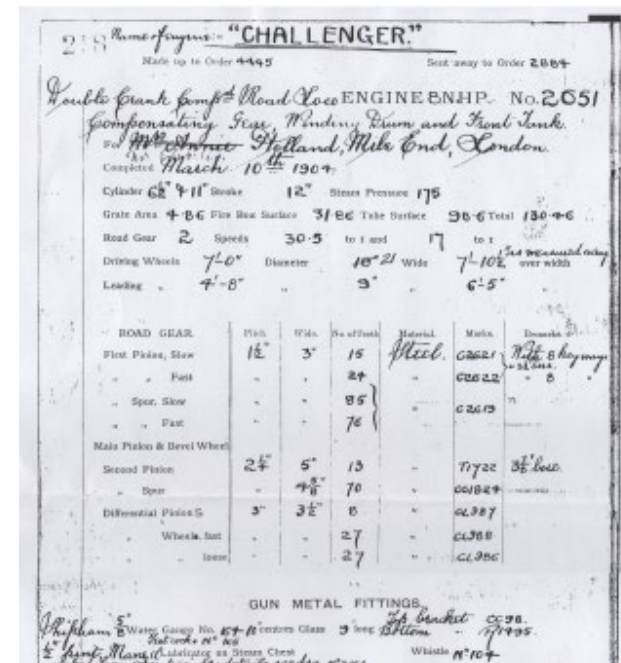 218 Name of engine:- "CHALLENGER."
Made up to Order 4495 Sent away to Order 2884
Double Crank Compd Road Loco ENGINE 8 NHP No. 2651
Compensating Gear, Winding Drum and Front Tank.
For Mrs Annie Holland, Mile End, London.
Completed March 10th 1904
Cylinder 6½" & 11" Stroke 12" Steam Pressure 175
Grate Area 4.86 Fire Box Surface 31.86 Tube Surface 98.6 Total 130.46
Road Gear 2 Speeds 30.5 to 1 and 17 to 1
Driving Wheels 7'-0" Diameter 18" Wide 7'-10½" over width
Leading " 4'-8" " 9" " 6'-5" "
ROAD GEAR. Pitch. Wide. No. of Teeth Material. Marks. Remarks
First Pinion, Slow 1½" 3" 15 Steel. C2621 With 8 keyways
" " Fast " " 24 C2622 " 8 "
" Spur, Slow " " 85 C2619
" " Fast " " 76
Main Pinion & Bevel Wheel
Second Pinion 2¼" 5" 13 " T1722 3½" bore.
" Spur " 4⅝" 70 " CO1824
Differential Pinions 3" 3½" 8 " CL987
" Wheels, fast " " 27 " CL988
" " loose " " 27 " CL986
GUN METAL FITTINGS.
Water Gauge No. centres Glass 9" long Top bracket CC98.
Bottom
½ pint Lubricator on Steam Chest Whistle No 104